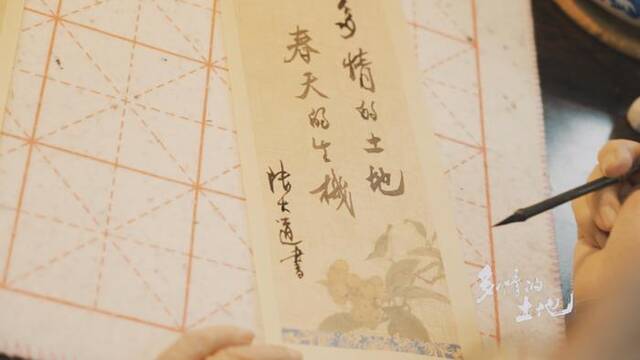 多情的土地
春天的生機
大道書
多情的
土地